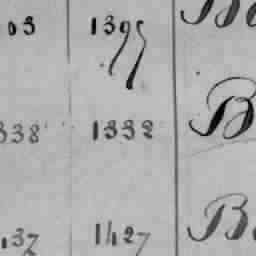 03 1395 B
338 1332 B
137 1427 B